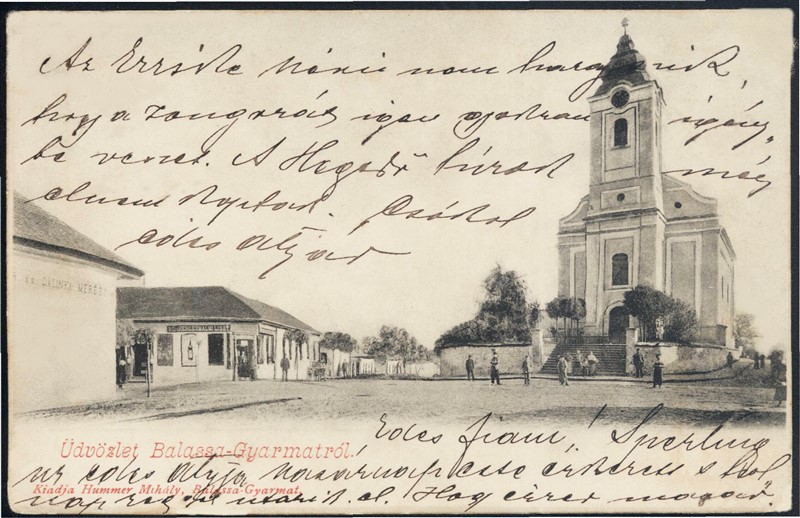 Az Erzsike néni nem haragszik,
hogy a zongorát igen gyakran igény-
be veszed. A Hegedű húrok még
el nem
Csókol
édes atyád
Üdvözlet Balassa-Gyarmatról.
Kiadja Hummer Mihály, Balassa-Gyarmat.
Edes fiam! Sperling
úr édes atyja vasárnap este érkezett s hol-
nap utazik el. Hogy érzed magad?